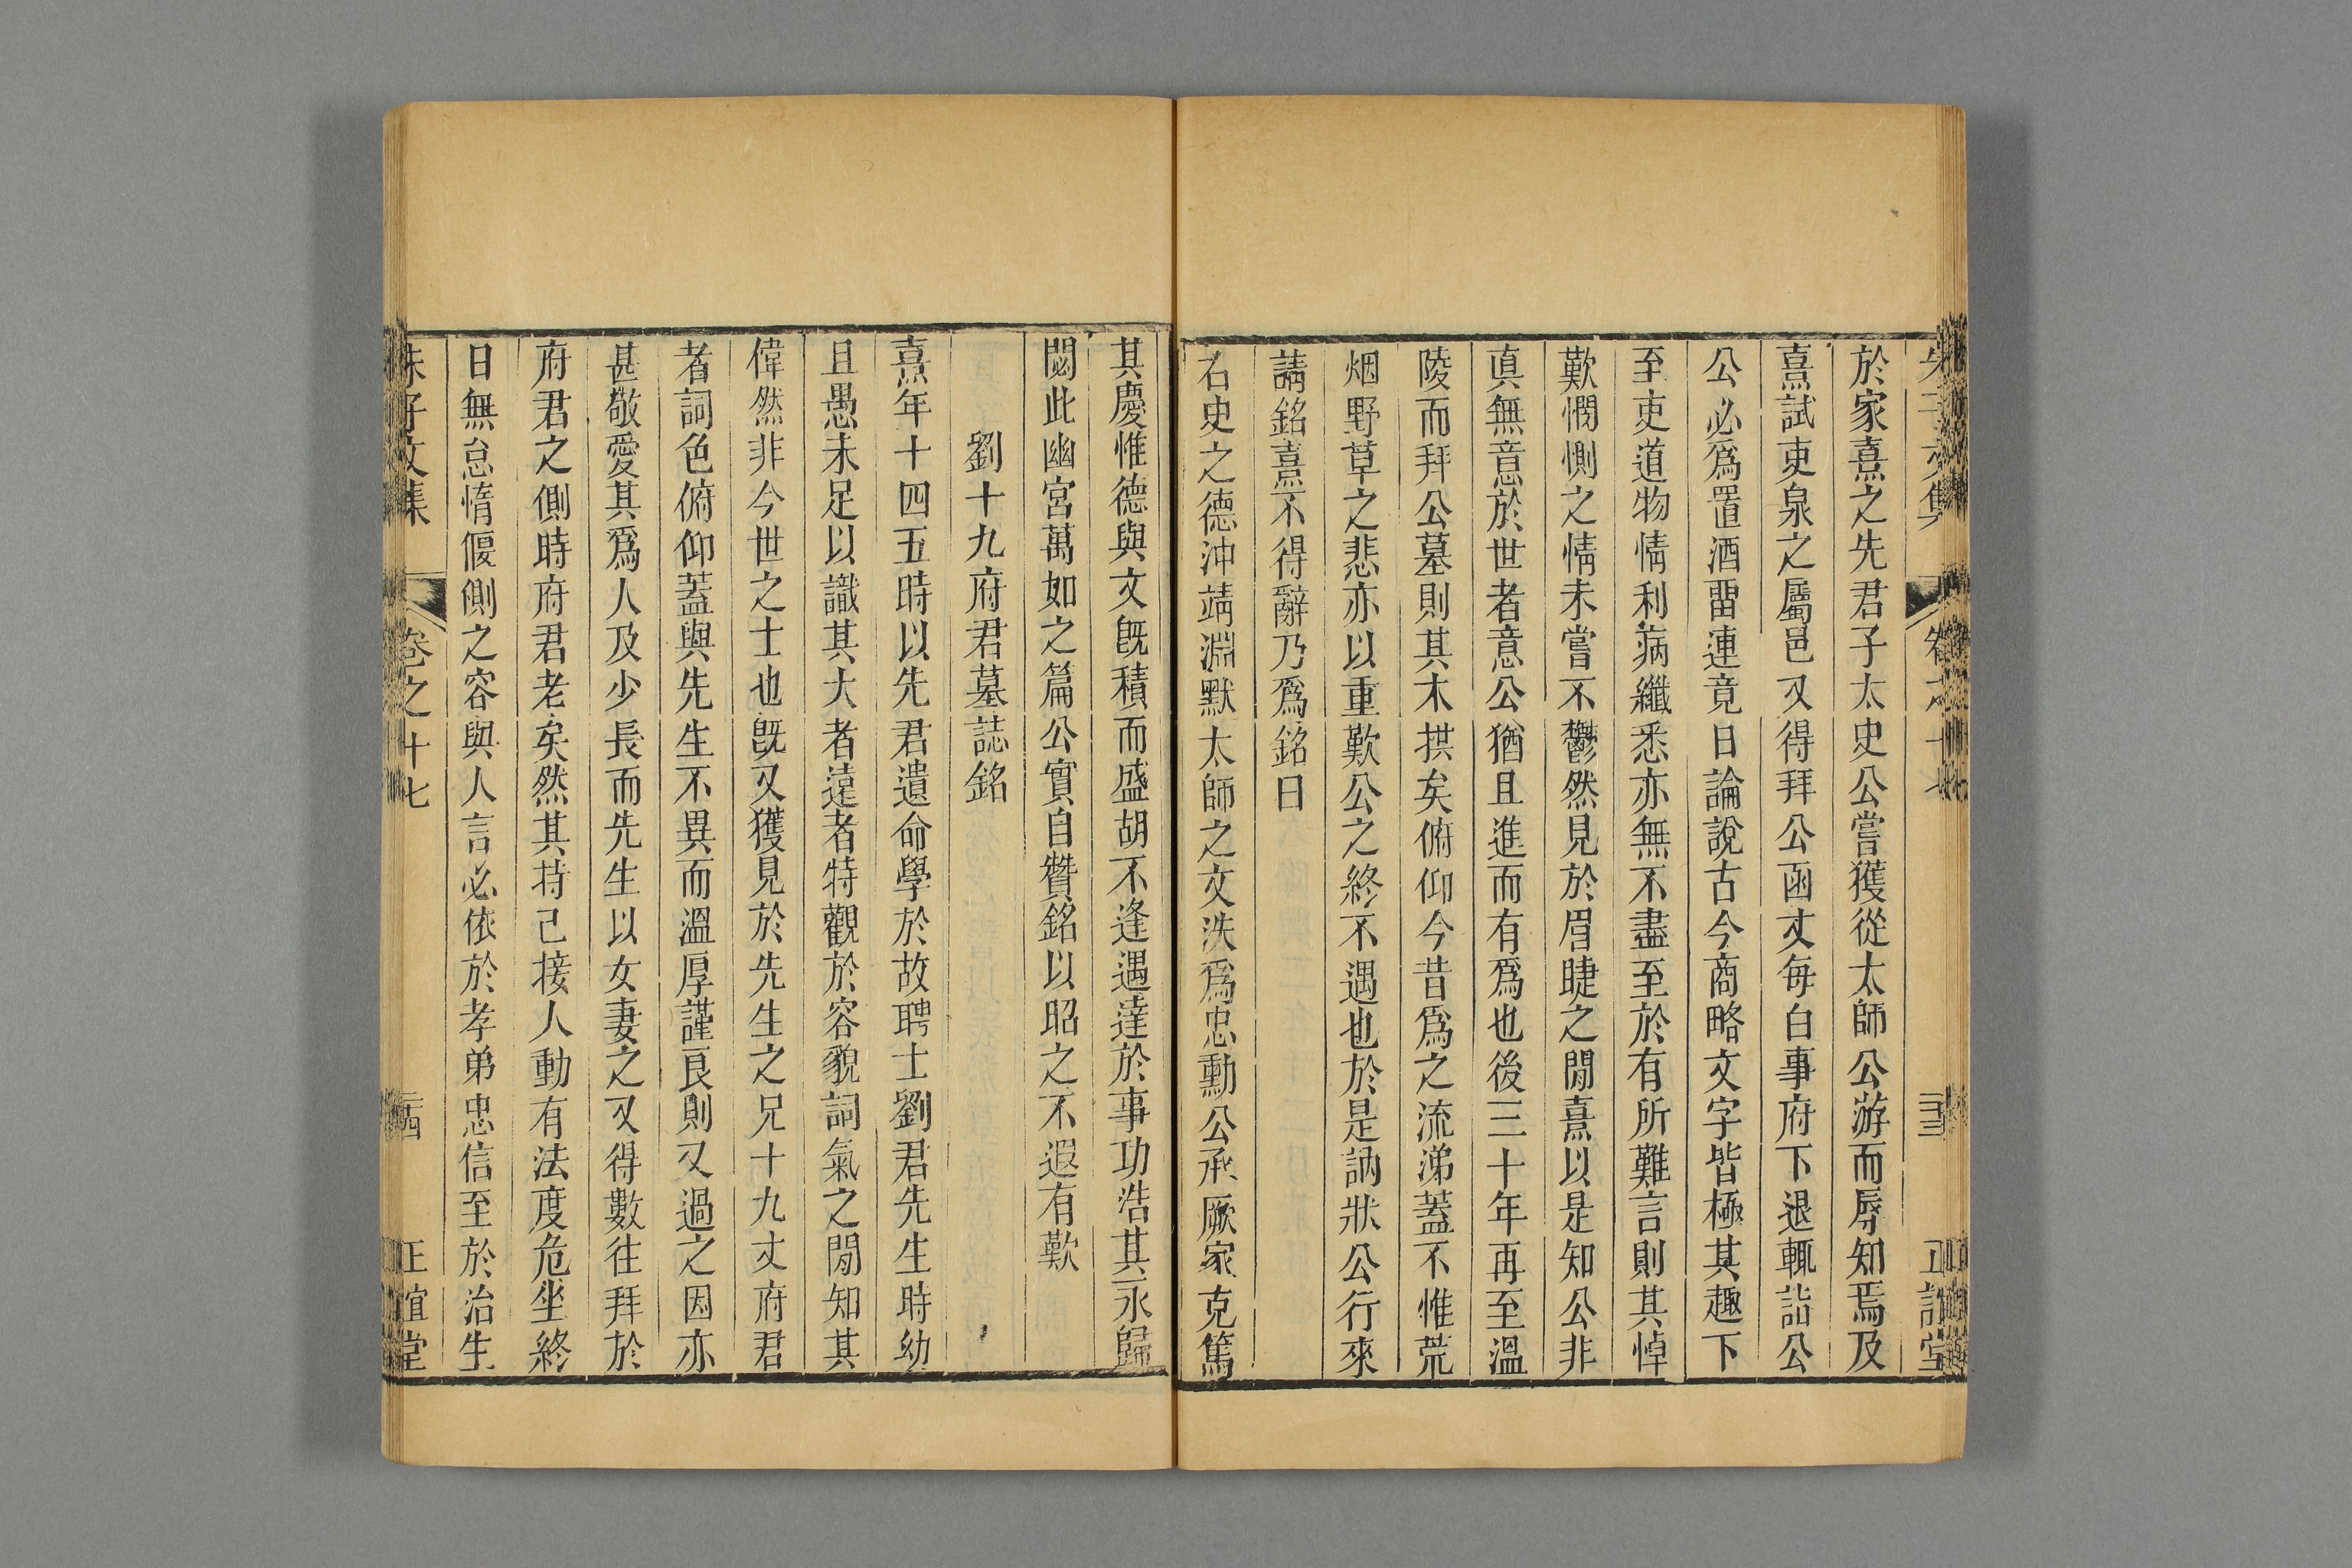 朱子文集 卷之十七 三 正誼堂
於家熹之先君子太史公嘗獲從太師公游而辱知焉及
熹試吏泉之屬邑又得拜公函丈每白事府下退輒詣公
公必爲置酒畱連竟日論說古今商略文字皆極其趣下
至吏道物情利病纖悉亦無不盡至於有所難言則其悼
歎憫惻之情未嘗不鬱然見於眉睫之閒熹以是知公非
眞無意於世者意公猶且進而有爲也後三十年再至溫
陵而拜公墓則其木拱矣俯仰今昔爲之流涕蓋不惟荒
烟野草之悲亦以重歎公之終不遇也於是訥狀公行來
請銘熹不得辭乃爲銘曰
石史之德沖靖淵默太師之文泆爲忠勳公承厥家克篤
其慶惟德與文旣積而盛胡不逢遇達於事功浩其永歸
閟此幽宮萬如之篇公實自贊銘以昭之不遐有歎
劉十九府君墓誌銘
熹年十四五時以先君遺命學於故聘士劉君先生時幼
且愚未足以識其大者遠者特觀於容貌詞氣之閒知其
偉然非今世之士也旣又獲見於先生之兄十九丈府君
者詞色俯仰蓋與先生不異而溫厚謹良則又過之因亦
甚敬愛其爲人及少長而先生以女妻之又得數往拜於
府君之側時府君老矣然其持己接人動有法度危坐終
日無怠惰偃側之容與人言必依於孝弟忠信至於治生
朱子文集 卷之十七 正誼堂